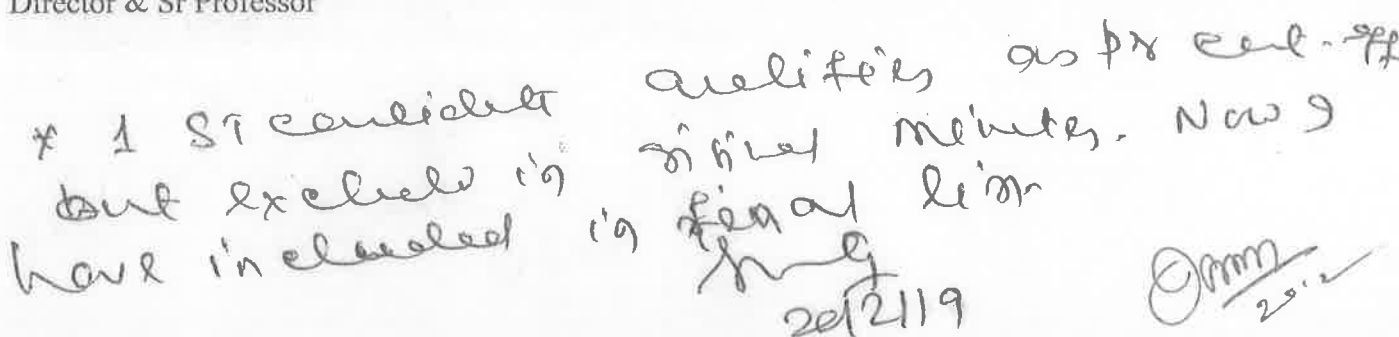 Director & Sr Professor
* 1 ST candidate qualifies as pr cut-off
but exclude in minutes. Now I
have included in final list
20/2/19
20.2